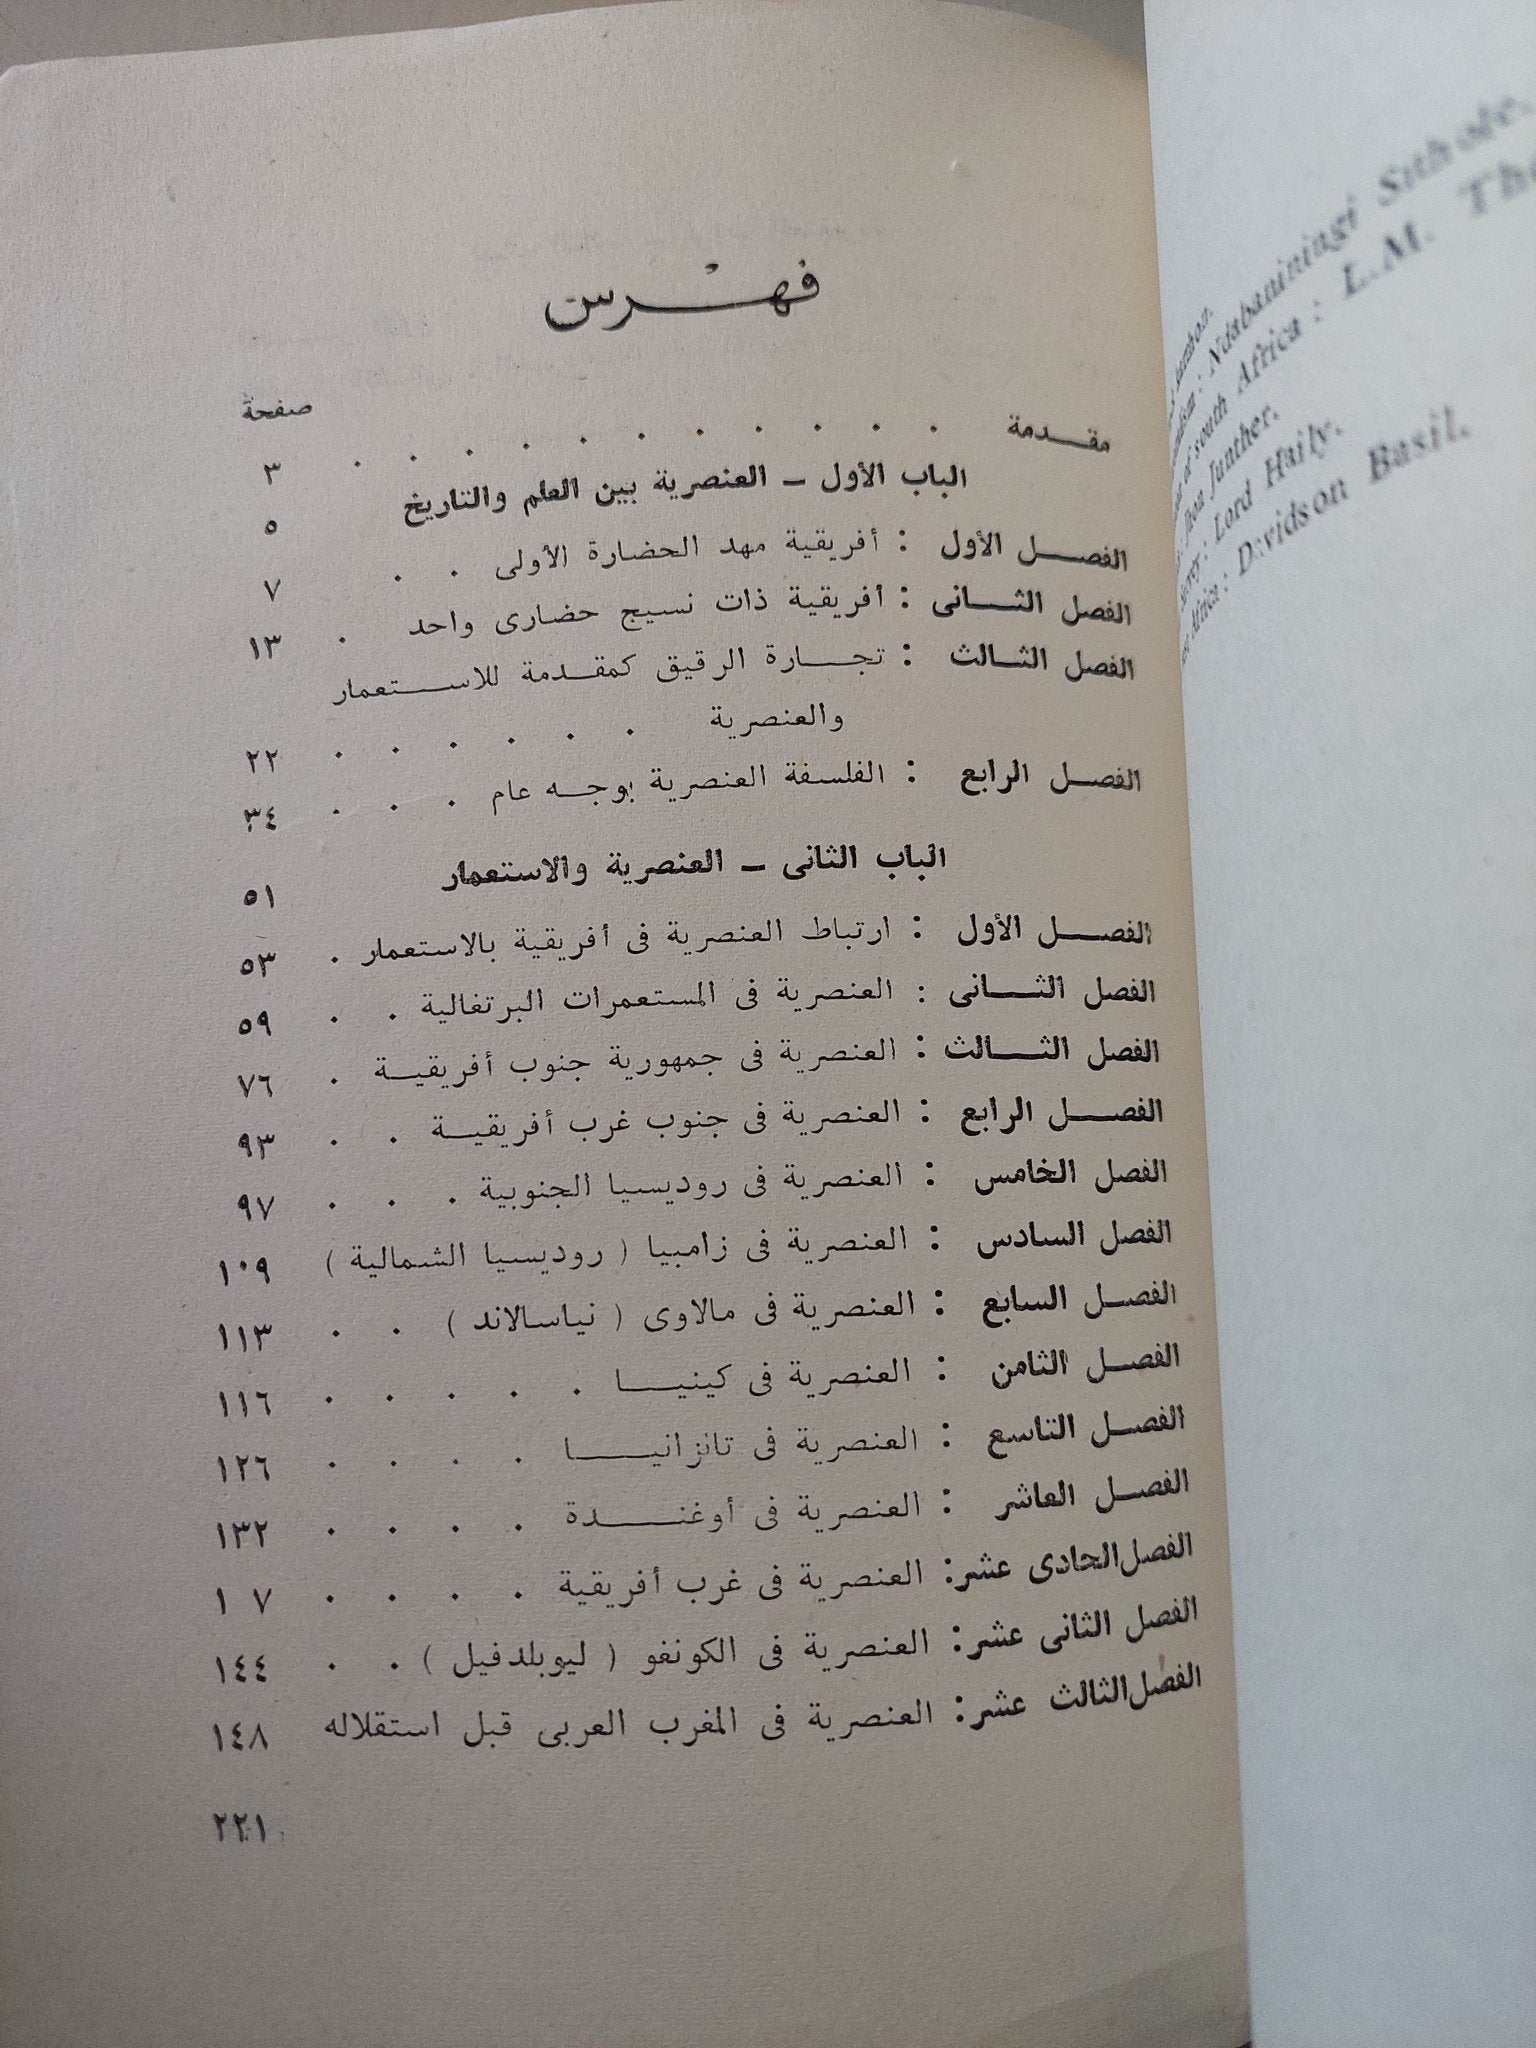 فهرس
صفحة
مقدمة . . . . . . . . . . . ٣
الباب الأول – العنصرية بين العلم والتاريخ ٥
الفصل الأول : أفريقية مهد الحضارة الأولى . . ٧
الفصل الثانى : أفريقية ذات نسيج حضارى واحد . ١٣
الفصل الثالث : تجارة الرقيق كمقدمة للاستعمار
والعنصرية . . . . . . ٢٢
الفصل الرابع : الفلسفة العنصرية بوجه عام . . . ٣٤
الباب الثانى – العنصرية والاستعمار ٥١
الفصل الأول : ارتباط العنصرية فى أفريقية بالاستعمار . ٥٣
الفصل الثانى : العنصرية فى المستعمرات البرتغالية . . ٥٩
الفصل الثالث : العنصرية فى جمهورية جنوب أفريقية . ٧٦
الفصل الرابع : العنصرية فى جنوب غرب أفريقية . . ٩٣
الفصل الخامس : العنصرية فى روديسيا الجنوبية . . . ٩٧
الفصل السادس : العنصرية فى زامبيا ( روديسيا الشمالية ) ١٠٩
الفصل السابع : العنصرية فى مالاوى ( نياسالاند ) . . ١١٣
الفصل الثامن : العنصرية فى كينيا . . . . . ١١٦
الفصل التاسع : العنصرية فى تانزانيا . . . . ١٢٦
الفصل العاشر : العنصرية فى أوغندة . . . . ١٣٢
الفصل الحادى عشر: العنصرية فى غرب أفريقية . . . . ١ ٧
الفصل الثانى عشر: العنصرية فى الكونغو ( ليوبلدفيل ) . . ١٤٤
الفصل الثالث عشر: العنصرية فى المغرب العربى قبل استقلاله ١٤٨
٢٢١
: Ndabaniningi Sithole.
of south Africa : L.M.
Junther.
: Lord Haily.
Africa : Davidson Basil.